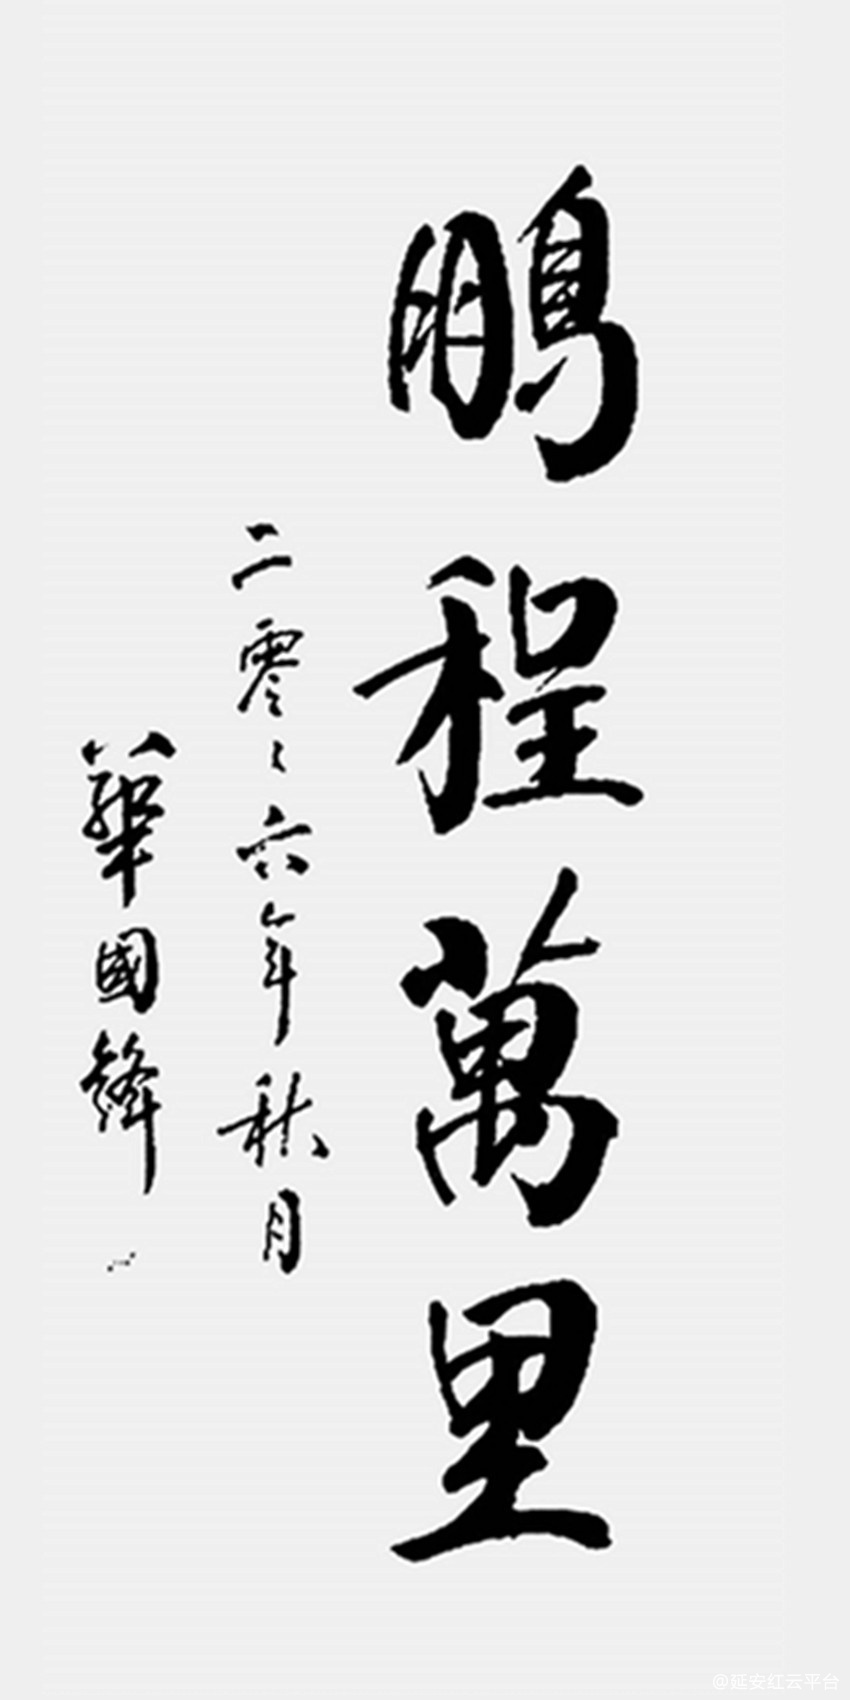 鵬程萬里
二零零六年秋月
華國鋒
@延安红云平台